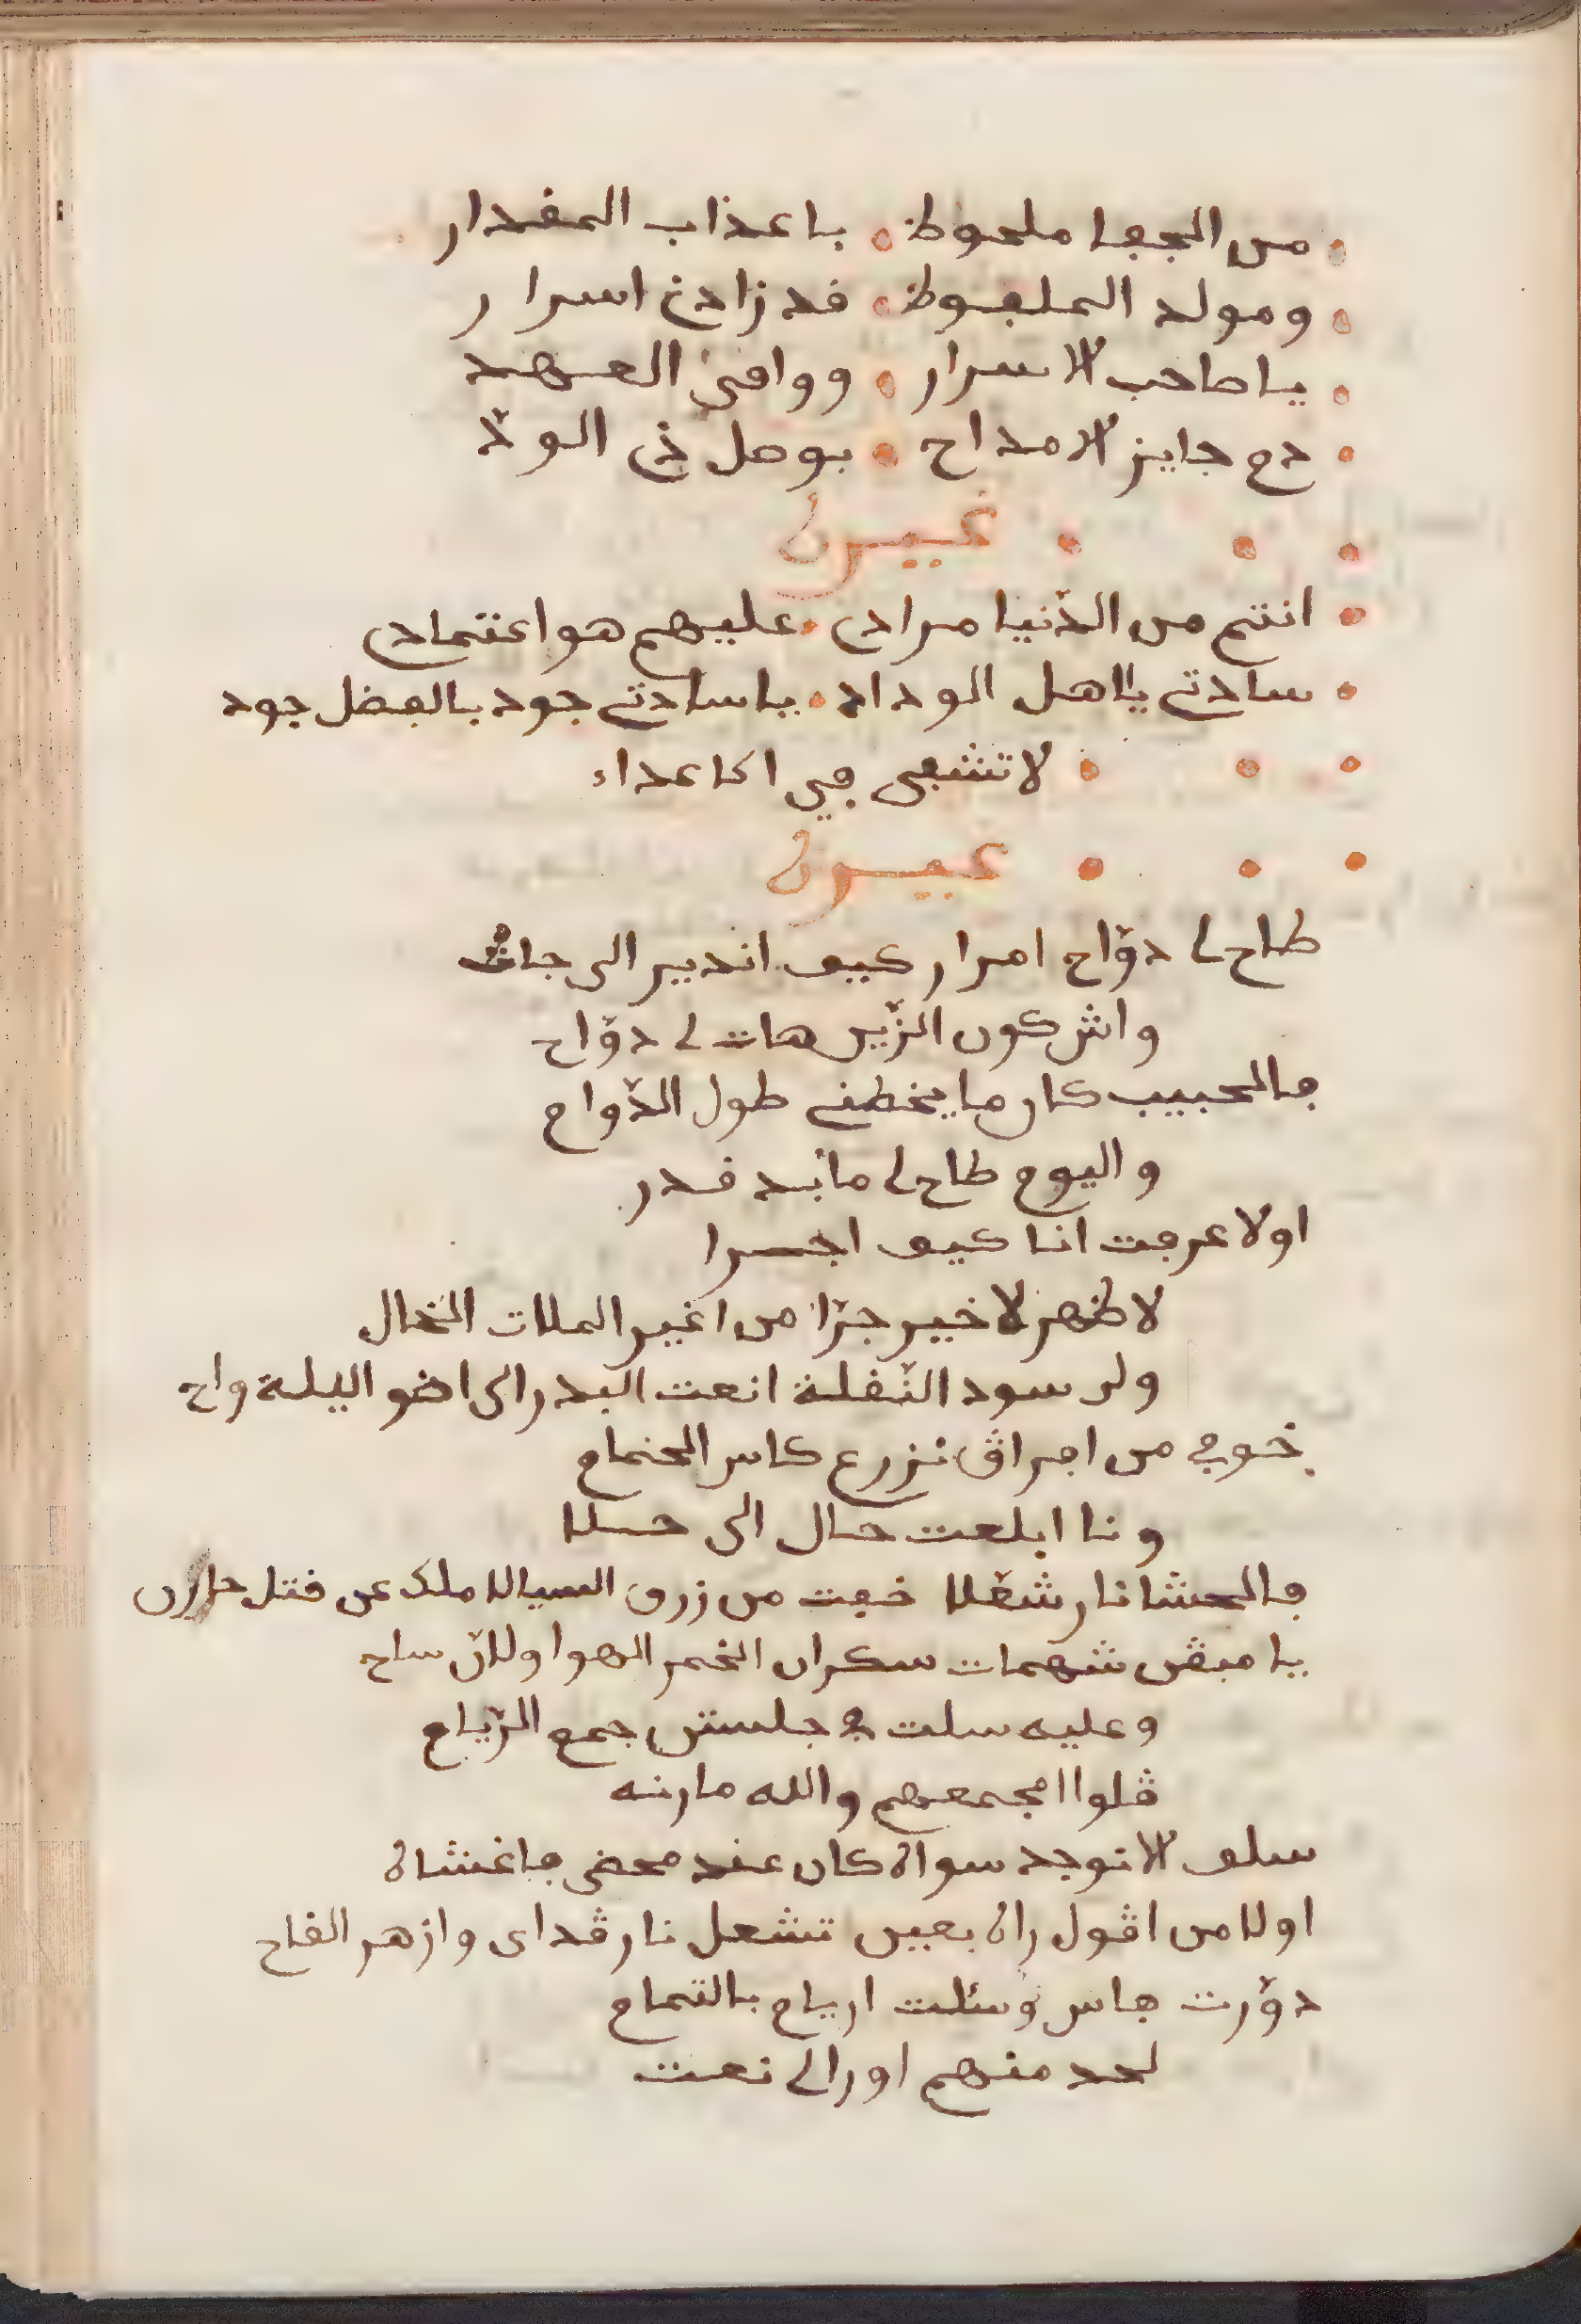 من الجفا ملحوظ باعذاب المقدار
ومولد الملفوظ قد زادن اسرار
يا صاحب الاسرار ووافي العهد
دم جايز الامداح بوصل ذي الود
غيرن
انتم من الدنيا مرادي عليهم هو اعتمادي
سادتي يااهل الوداد يا سادتي جود بالفضل جود
لا تشفى في الاعداء
غيرن
طاح لي دواح امرار كيف اندير الى جات
واش كون الزين هات لي دواح
فالحبيب كان ما يخطني طول الدوام
واليوم طاح لي مابيد قدر
اولا عرفت انا كيف اجرا
لا ظهر لا خير جرا من اغير الملات الخال
ولر سود النقلة انعت البدر الى اضو اليلة واح
خوفي من افراق نزرع كاس الحمام
ونا ابلعت حال الى حلا
فالحشا نار شعلا خفت من زرق السيالا ملك عن قتل
يا مبڨى شهمات سكران الخمر الهوا ولان ساح
وعليه سلت في جلستي جمع الرياح
ڨلوا امجمعهم والله مارينه
سلف الا توجد سواه كان عند محضى ما غشاه
اولا من اڨول راه بعين تشعل نار ڨداى وازهر الفاح
دورت فاس وسئلت ارياح بالتمام
لحد منهم اورالي نعت